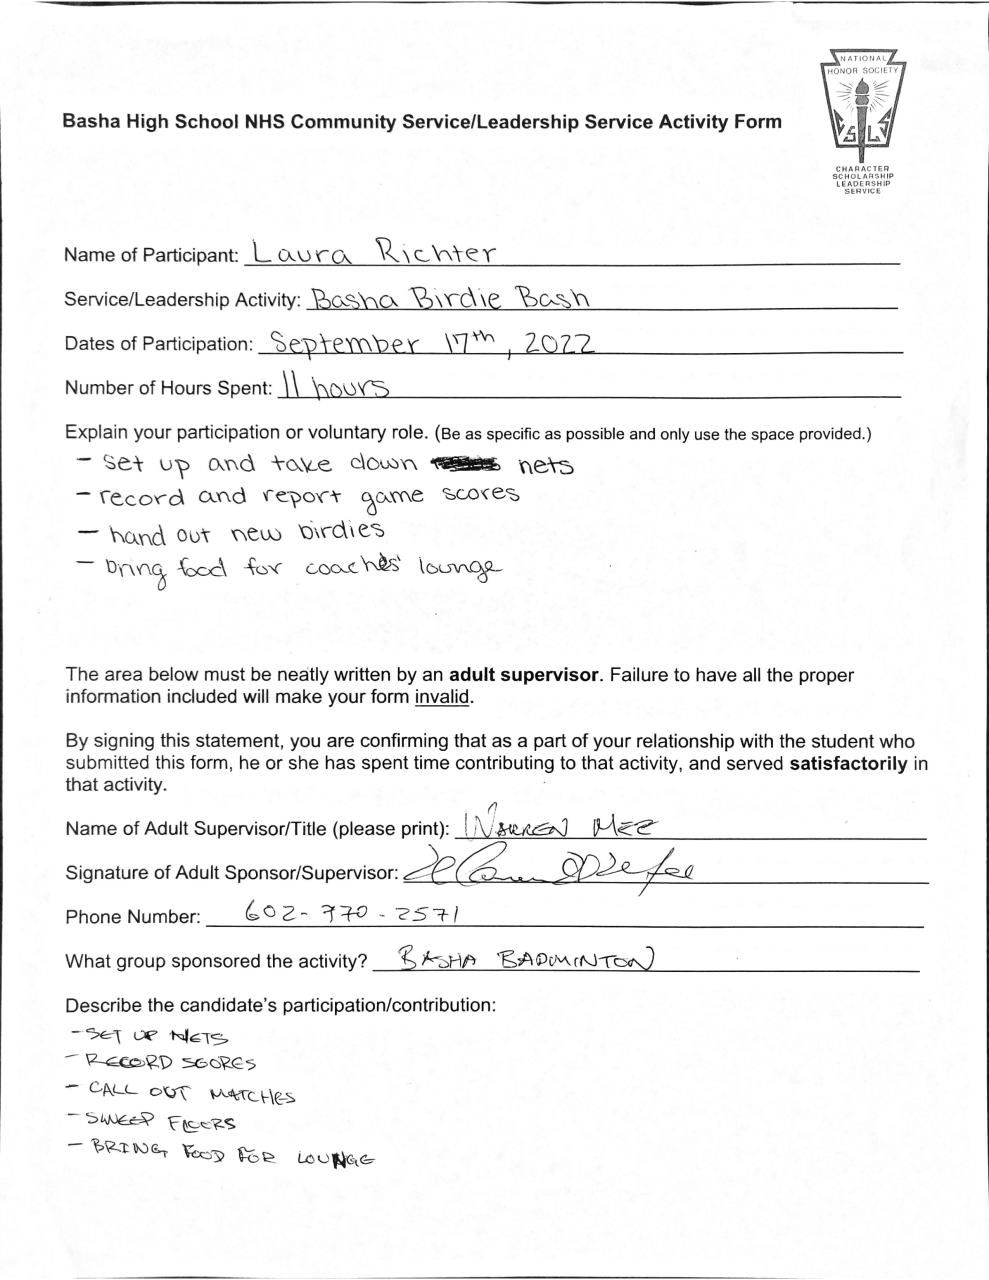 NATIONAL
HONOR SOCIETY
CSLS
CHARACTER
SCHOLARSHIP
LEADERSHIP
SERVICE
Basha High School NHS Community Service/Leadership Service Activity Form
Name of Participant: Laura Richter
Service/Leadership Activity: Basha Birdie Bash
Dates of Participation: September 17th, 2022
Number of Hours Spent: 11 hours
Explain your participation or voluntary role. (Be as specific as possible and only use the space provided.)
- set up and take down nets
- record and report game scores
- hand out new birdies
- bring food for coaches' lounge
The area below must be neatly written by an adult supervisor. Failure to have all the proper
information included will make your form invalid.
By signing this statement, you are confirming that as a part of your relationship with the student who
submitted this form, he or she has spent time contributing to that activity, and served satisfactorily in
that activity.
Name of Adult Supervisor/Title (please print): WARREN MEE
Signature of Adult Sponsor/Supervisor:
Phone Number: 602-770-2571
What group sponsored the activity? BASHA BADMINTON
Describe the candidate's participation/contribution:
- SET UP NETS
- RECORD SCORES
- CALL OUT MATCHES
- SWEEP FLOORS
- BRING FOOD FOR LOUNGE